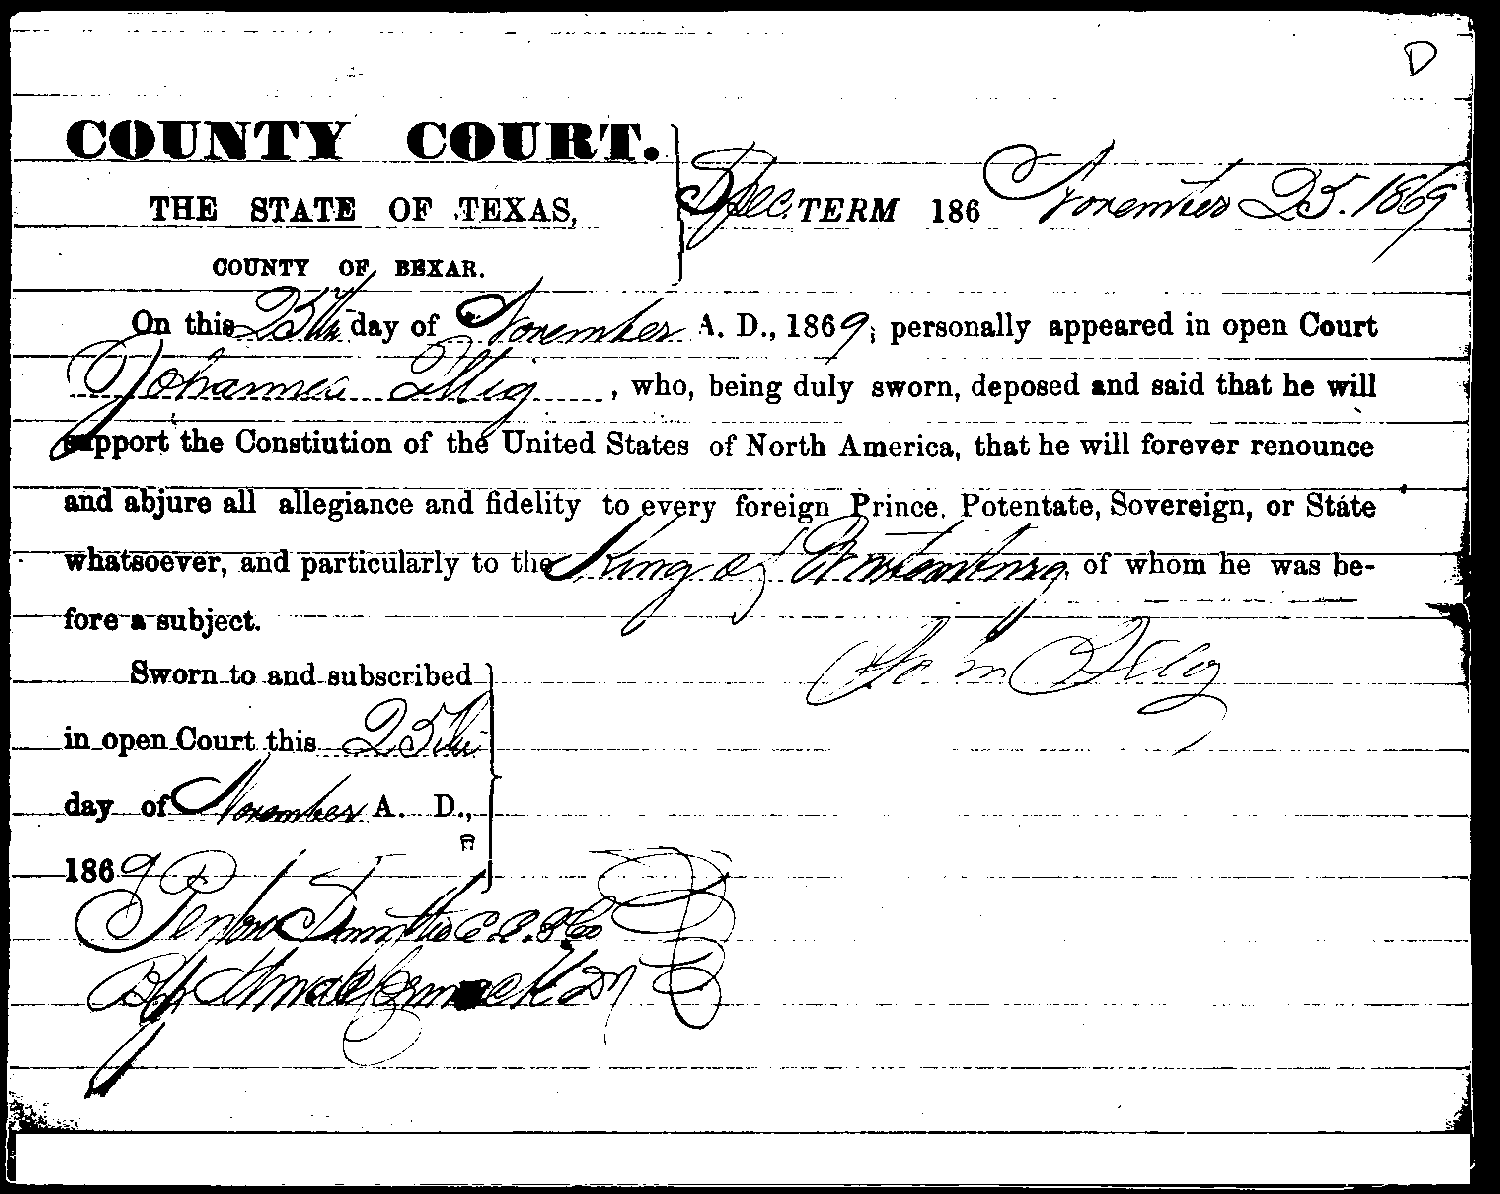 D
COUNTY COURT.
THE STATE OF TEXAS,
COUNTY OF BEXAR.
Spec. TERM 186 November 25. 1869
On this 25th day of November A. D., 1869; personally appeared in open Court
Johannes Illig, who, being duly sworn, deposed and said that he will
support the Constiution of the United States of North America, that he will forever renounce
and abjure all allegiance and fidelity to every foreign Prince. Potentate, Sovereign, or State
whatsoever, and particularly to the King of Wurtemburg, of whom he was be-
fore a subject.
John Illig
Sworn to and subscribed
in open Court this 25th
day of November A. D.,
1869
By